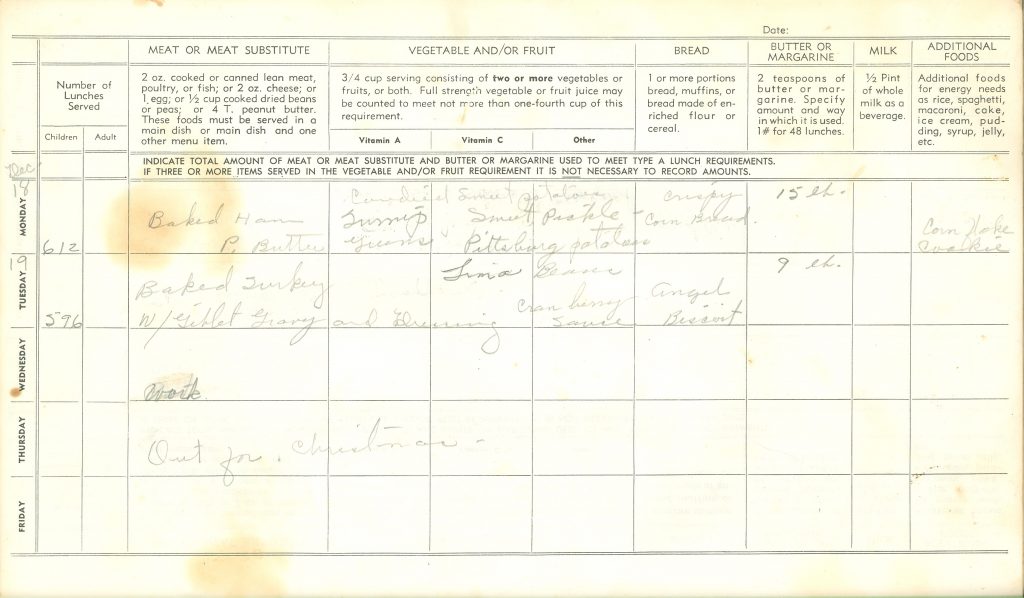 Date:
MEAT OR MEAT SUBSTITUTE
VEGETABLE AND/OR FRUIT
BREAD
BUTTER OR
MARGARINE
MILK
ADDITIONAL
FOODS
Number of
Lunches
Served
2 oz. cooked or canned lean meat,
poultry, or fish; or 2 oz. cheese; or
1 egg; or ½ cup cooked dried beans
or peas; or 4 T. peanut butter.
These foods must be served in a
main dish or main dish and one
other menu item.
3/4 cup serving consisting of two or more vegetables or
fruits, or both. Full strength vegetable or fruit juice may
be counted to meet not more than one-fourth cup of this
requirement.
1 or more portions
bread, muffins, or
bread made of en-
riched flour or
cereal.
2 teaspoons of
butter or mar-
garine. Specify
amount and way
in which it is used.
1# for 48 lunches.
½ Pint
of whole
milk as a
beverage.
Additional foods
for energy needs
as rice, spaghetti,
macaroni, cake,
ice cream, pud-
ding, syrup, jelly,
etc.
Children
Adult
Vitamin A
Vitamin C
Other
INDICATE TOTAL AMOUNT OF MEAT OR MEAT SUBSTITUTE AND BUTTER OR MARGARINE USED TO MEET TYPE A LUNCH REQUIREMENTS.
IF THREE OR MORE ITEMS SERVED IN THE VEGETABLE AND/OR FRUIT REQUIREMENT IT IS NOT NECESSARY TO RECORD AMOUNTS.
Dec
18
MONDAY
Sweet potatoes
crispy
15 lb.
Baked Ham
Turnip
Sweet Pickle
Corn Bread
Corn Flake
612
P. Butter
Pittsburg potatoes
Cookie
19
TUESDAY
Lima Beans
9 lb.
Baked Turkey
Cranberry
Angel
596
W/ Giblet Gravy and Dressing
Sauce
Biscoit
WEDNESDAY
Work
THURSDAY
Out for Christmas -
FRIDAY